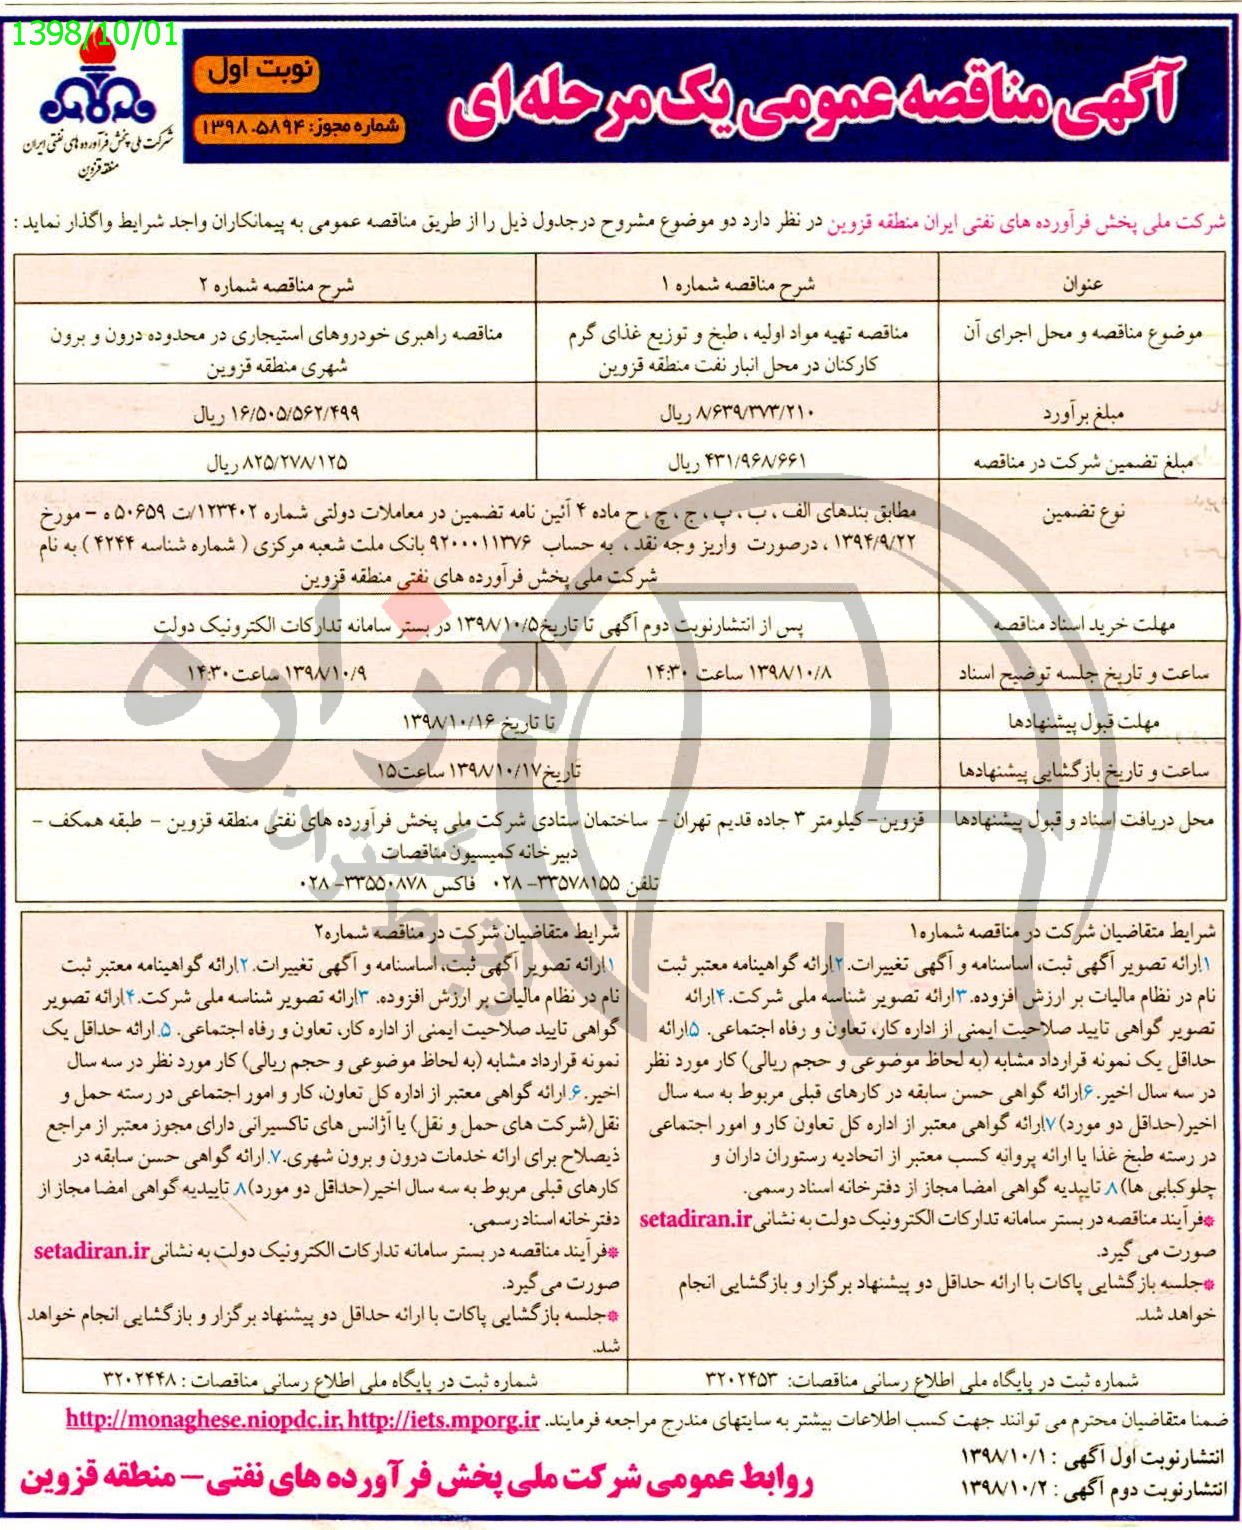 1398/10/01
آگهی مناقصه عمومی یک مرحله ای
نوبت اول
شماره مجوز: ۱۳۹۸.۵۸۹۴
شرکت ملی پخش فرآورده های نفتی ایران
منطقه قزوین
شرکت ملی پخش فرآورده های نفتی ایران منطقه قزوین در نظر دارد دو موضوع مشروح درجدول ذیل را از طریق مناقصه عمومی به پیمانکاران واجد شرایط واگذار نماید :
عنوان
شرح مناقصه شماره ۱
شرح مناقصه شماره ۲
موضوع مناقصه و محل اجرای آن
مناقصه تهیه مواد اولیه ، طبخ و توزیع غذای گرم
کارکنان در محل انبار نفت منطقه قزوین
مناقصه راهبری خودروهای استیجاری در محدوده درون و برون
شهری منطقه قزوین
مبلغ برآورد
۸/۶۳۹/۳۷۳/۲۱۰ ریال
۱۶/۵۰۵/۵۶۲/۴۹۹ ریال
مبلغ تضمین شرکت در مناقصه
۴۳۱/۹۶۸/۶۶۱ ریال
۸۲۵/۲۷۸/۱۲۵ ریال
نوع تضمین
مطابق بندهای الف ، ب ، پ ، ج ، چ ، ح ماده ۴ آئین نامه تضمین در معاملات دولتی شماره ۱۲۳۴۰۲/ت ۵۰۶۵۹ ه – مورخ
۱۳۹۴/۹/۲۲ ، درصورت واریز وجه نقد ، به حساب ۹۲۰۰۰۱۱۳۷۶ بانک ملت شعبه مرکزی ( شماره شناسه ۴۲۴۴ ) به نام
شرکت ملی پخش فرآورده های نفتی منطقه قزوین
مهلت خرید اسناد مناقصه
پس از انتشارنوبت دوم آگهی تا تاریخ۱۳۹۸/۱۰/۵ در بستر سامانه تدارکات الکترونیک دولت
ساعت و تاریخ جلسه توضیح اسناد
۱۳۹۸/۱۰/۸ ساعت ۱۴:۳۰
۱۳۹۸/۱۰/۹ ساعت۱۴:۳۰
مهلت قبول پیشنهادها
تا تاریخ ۱۳۹۸/۱۰/۱۶
ساعت و تاریخ بازگشایی پیشنهادها
تاریخ۱۳۹۸/۱۰/۱۷ ساعت۱۵
محل دریافت اسناد و قبول پیشنهادها
قزوین – کیلومتر ۳ جاده قدیم تهران – ساختمان ستادی شرکت ملی پخش فرآورده های نفتی منطقه قزوین – طبقه همکف –
دبیرخانه کمیسیون مناقصات
تلفن ۳۳۵۷۸۱۵۵-۰۲۸ فاکس ۳۳۵۵۰۸۷۸-۰۲۸
شرایط متقاضیان شرکت در مناقصه شماره۱
۱.ارائه تصویر آگهی ثبت، اساسنامه و آگهی تغییرات.۲.ارائه گواهینامه معتبر ثبت
نام در نظام مالیات بر ارزش افزوده.۳.ارائه تصویر شناسه ملی شرکت.۴.ارائه
تصویر گواهی تایید صلاحیت ایمنی از اداره کار، تعاون و رفاه اجتماعی. ۵.ارائه
حداقل یک نمونه قرارداد مشابه (به لحاظ موضوعی و حجم ریالی) کار مورد نظر
در سه سال اخیر.۶.ارائه گواهی حسن سابقه در کارهای قبلی مربوط به سه سال
اخیر(حداقل دو مورد)۷.ارائه گواهی معتبر از اداره کل تعاون کار و امور اجتماعی
در رسته طبخ غذا یا ارائه پروانه کسب معتبر از اتحادیه رستوران داران و
چلوکبابی ها)۸.تاییدیه گواهی امضا مجاز از دفترخانه اسناد رسمی.
*فرآیند مناقصه در بستر سامانه تدارکات الکترونیک دولت به نشانی setadiran.ir
صورت می گیرد.
*جلسه بازگشایی پاکات با ارائه حداقل دو پیشنهاد برگزار و بازگشایی انجام
خواهد شد.
شرایط متقاضیان شرکت در مناقصه شماره۲
۱.ارائه تصویر آگهی ثبت، اساسنامه و آگهی تغییرات.۲.ارائه گواهینامه معتبر ثبت
نام در نظام مالیات بر ارزش افزوده. ۳.ارائه تصویر شناسه ملی شرکت.۴.ارائه تصویر
گواهی تایید صلاحیت ایمنی از اداره کار، تعاون و رفاه اجتماعی. ۵.ارائه حداقل یک
نمونه قرارداد مشابه (به لحاظ موضوعی و حجم ریالی) کار مورد نظر در سه سال
اخیر.۶.ارائه گواهی معتبر از اداره کل تعاون، کار و امور اجتماعی در رسته حمل و
نقل(شرکت های حمل و نقل) یا آژانس های تاکسیرانی دارای مجوز معتبر از مراجع
ذیصلاح برای ارائه خدمات درون و برون شهری.۷.ارائه گواهی حسن سابقه در
کارهای قبلی مربوط به سه سال اخیر(حداقل دو مورد)۸.تاییدیه گواهی امضا مجاز از
دفترخانه اسناد رسمی.
*فرآیند مناقصه در بستر سامانه تدارکات الکترونیک دولت به نشانی setadiran.ir
صورت می گیرد.
*جلسه بازگشایی پاکات با ارائه حداقل دو پیشنهاد برگزار و بازگشایی انجام خواهد
شد.
شماره ثبت در پایگاه ملی اطلاع رسانی مناقصات: ۳۲۰۲۴۵۳
شماره ثبت در پایگاه ملی اطلاع رسانی مناقصات : ۳۲۰۲۴۴۸
ضمنا متقاضیان محترم می توانند جهت کسب اطلاعات بیشتر به سایتهای مندرج مراجعه فرمایند. http://monaghese.niopdc.ir, http://iets.mporg.ir
انتشارنوبت اول آگهی : ۱۳۹۸/۱۰/۱
انتشارنوبت دوم آگهی : ۱۳۹۸/۱۰/۲
روابط عمومی شرکت ملی پخش فرآورده های نفتی – منطقه قزوین
هزاره
گستران
ارتباط